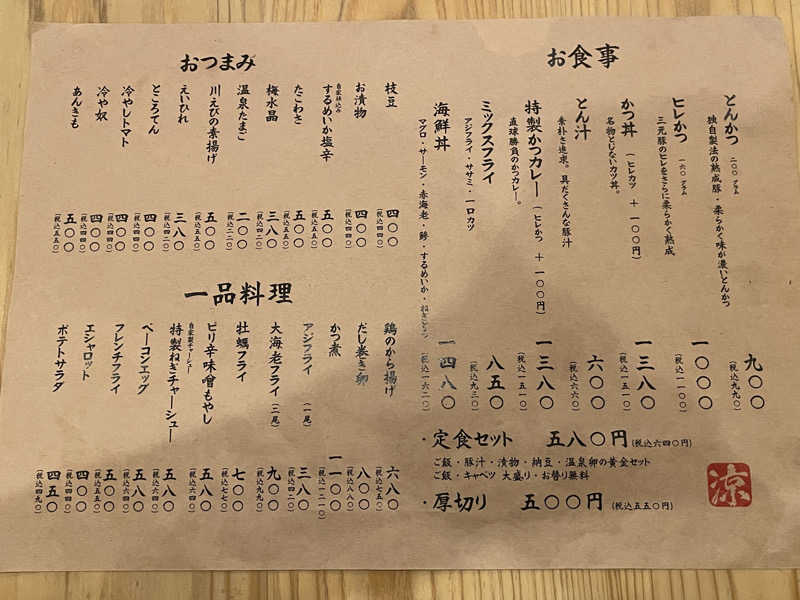 お食事
とんかつ 二〇〇グラム
独自製法の熟成豚・柔らかく味が濃いとんかつ
九〇〇
(税込九九〇)
ヒレかつ 一六〇グラム
三元豚のヒレをさらに柔らかく熟成
一〇〇〇
(税込一一〇〇)
かつ丼 (ヒレカツ + 一〇〇円)
名物とじないカツ丼。
一三八〇
(税込一五一〇)
とん汁
素朴さ追求。具だくさんな豚汁
六〇〇
(税込六六〇)
特製かつカレー (ヒレかつ + 一〇〇円)
直球勝負のかつカレー。
一三八〇
(税込一五一〇)
ミックスフライ
アジフライ・ササミ・一口カツ
八五〇
(税込九三〇)
海鮮丼
マグロ・サーモン・赤海老・鯵・するめいか・ねぎとろ
一四八〇
(税込一六二〇)
・定食セット 五八〇円 (税込六四〇円)
ご飯・豚汁・漬物・納豆・温泉卵の黄金セット
ご飯・キャベツ 大盛り・お替り無料
・厚切り 五〇〇円 (税込五五〇円)
涼
おつまみ
枝豆
四〇〇
(税込四四〇)
お漬物
四〇〇
(税込四四〇)
自家仕込み
するめいか塩辛
五〇〇
(税込五五〇)
たこわさ
五〇〇
(税込五五〇)
梅水晶
三八〇
(税込四二〇)
温泉たまご
二〇〇
(税込二二〇)
川えびの素揚げ
五〇〇
(税込五五〇)
えいひれ
三八〇
(税込四二〇)
ところてん
四〇〇
(税込四四〇)
冷やしトマト
四〇〇
(税込四四〇)
冷や奴
四〇〇
(税込四四〇)
あんきも
五〇〇
(税込五五〇)
一品料理
鶏のから揚げ
六八〇
(税込七五〇)
だし巻き卵
八〇〇
(税込八八〇)
かつ煮
一一〇〇
(税込一二一〇)
アジフライ (一尾)
三八〇
(税込四二〇)
大海老フライ (二尾)
九〇〇
(税込九九〇)
牡蠣フライ
七〇〇
(税込七七〇)
ピリ辛味噌もやし
五八〇
(税込六四〇)
自家製チャーシュー
特製ねぎチャーシュー
五八〇
(税込六四〇)
ベーコンエッグ
五八〇
(税込六四〇)
フレンチフライ
五〇〇
(税込五五〇)
エシャロット
四〇〇
(税込四四〇)
ポテトサラダ
四五〇
(税込四九〇)